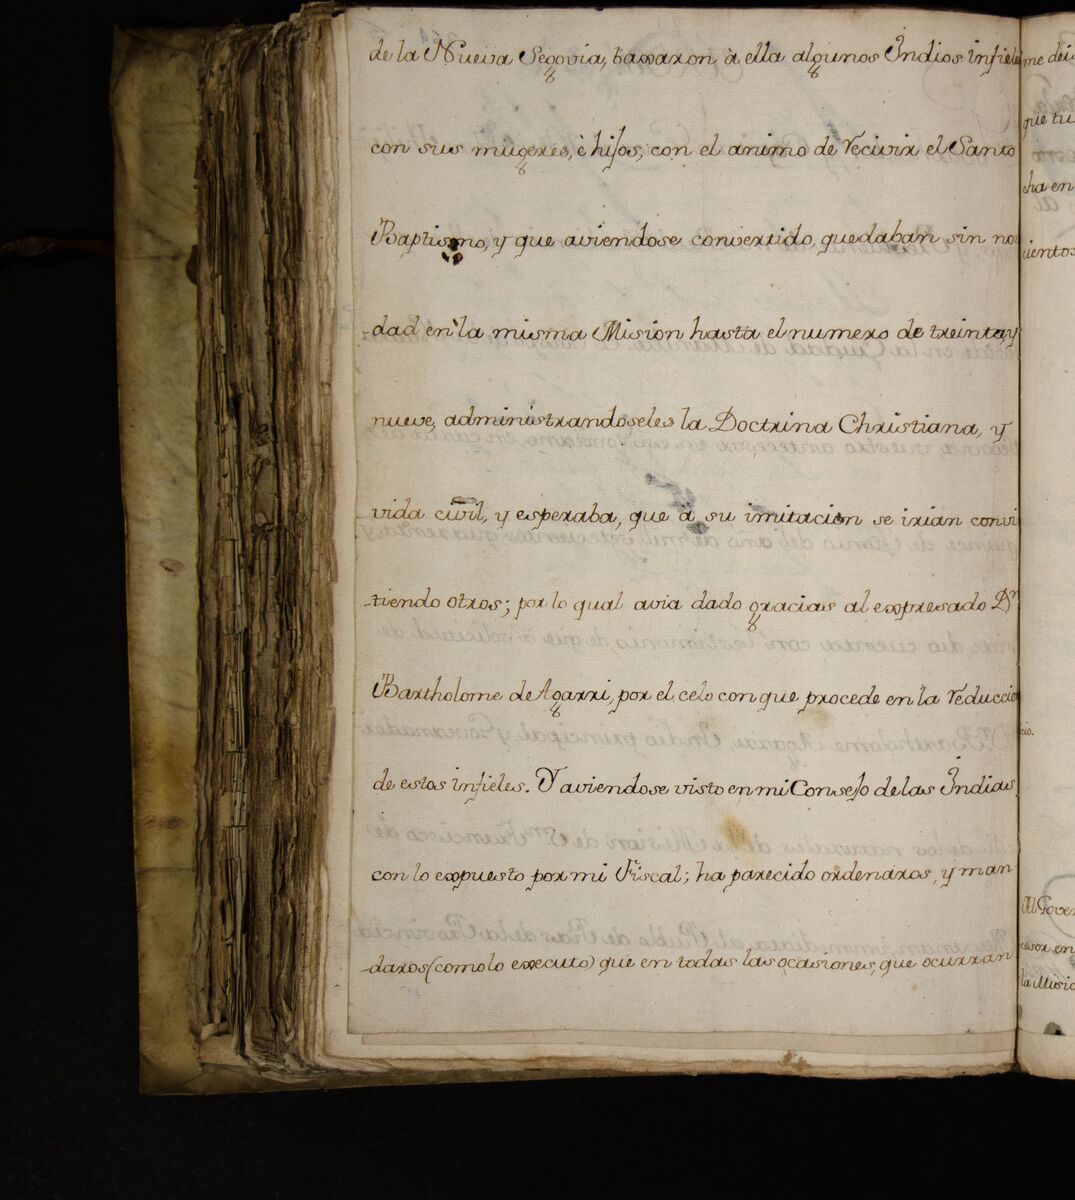 de la Nueva Segovia, baxaron à ella algunos Indios infiele
con sus mugeres, è hijos, con el animo de recivir el Santo
Baptismo, y que aviendose convertido, quedaban sin no
dad en la misma Mision hasta el numero de treinta, y
nueve, administrandoseles la Doctrina Christiana, y
vida civil, y esperaba, que à su imitacion se irian convi
tiendo otros; por lo qual avia dado gracias al expresado Dn
Bartholome de Agarri, por el celo con que procede en la reduccio
de estos infieles. Y aviendose visto en mi Consejo de las Indias
con lo expuesto por mi Fiscal; ha parecido ordenaros, y man
daros (como lo executo) que en todas las ocasiones, que ocurran
me dei
que tu
cha en
cientos
cio.
Al Gover
cesor en
la Misio